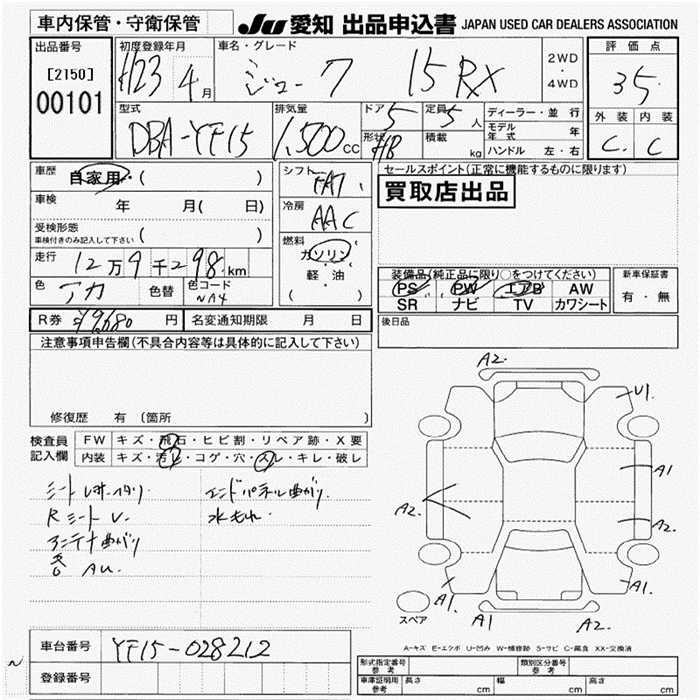 車内保管・守衛保管
JU 愛知 出品申込書 JAPAN USED CAR DEALERS ASSOCIATION
出品番号
[2150]
00101
初度登録年月
H23 4 月
車名・グレード
ジューク 15RX
2WD
・
4WD
評価点
3.5
外装 内装
C C
型式
DBA-YF15
排気量
1,500 cc
ドア 5
形状 HB
定員 5 人
積載 kg
ディーラー・並行
モデル年式 年
ハンドル 左・右
車歴 自家用・( )
車検 年 月( 日)
受検形態
車検付きのみ記入して下さい ( )
走行 12万9千298km
色 アカ 色替 色コード NA4
R券 ¥9,680 円 名変通知期限 月 日
シフト FAT
冷房 AAC
燃料
ガソリン
軽・油
( )
セールスポイント(正常に機能するものに限ります)
買取店出品
装備品(純正品に限り○をつけてください)
PS PW エアB AW
SR ナビ TV カワシート
新車保証書
有・無
後日品
注意事項申告欄(不具合内容等は具体的に記入して下さい)
修復歴 有 (箇所 )
検査員記入欄
FW キズ・飛石・ヒビ割・リペア跡・X要
内装 キズ・汚レ・コゲ・穴・スレ・キレ・破レ
Rシート U.
アンテナ曲がり
AU.
エンドパネル曲がり.
水もれ.
A2.
U1.
A1
A2.
A2.
A1.
A1
A2.
A1.
スペア
A-キズ E-エクボ U-凹み W-補修跡 S-サビ C-腐食 XX-交換済
車台番号 YF15-028212
登録番号
形式指定番号 参考
類別区分番号 参考
車庫証明用 参考 長さ cm 幅 cm 高さ cm